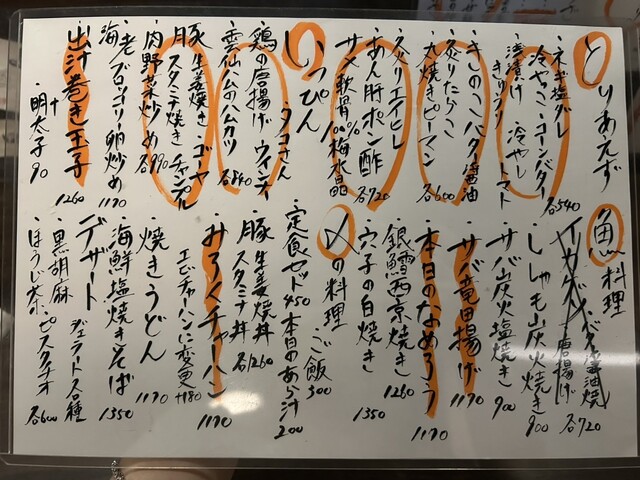 とりあえず
ネギ塩ダレ
冷やっこ・コーンバター
各540
浅漬け 冷やしトマト
きゅうり
・きのこバター醤油
・炙りたらこ
・丸焼きピーマン
各600
・炙りエイヒレ
・あん肝ポン酢
各720
・サメ軟骨の梅水晶
いっぴん
うコさん
・鶏の唐揚げ ウィンナー
・雲仙ハムのハムカツ
各840
・豚生姜焼き・ゴーヤ
・豚スタミナ焼き チャンプル
・肉野菜炒め 各990
・海老ブロッコリー卵炒め
1170
・出汁巻き玉子
1260
・ + 明太子 90
魚料理
イカゲソ・バター醤油焼
・唐揚げ
各720
・ししゃも炭火焼き
900
・サバ炭火塩焼き
900
・サバ竜田揚げ
1170
・本日のなめろう
1170
・銀鱈西京焼き
1260
・穴子の白焼き
1350
〆の料理
・ご飯 300
・定食セット450 本日のあら汁 200
・豚生姜焼丼
スタミナ丼
各1260
・みろくチャーハン
1170
エビチャーハンに変更
+180
・焼きうどん
1170
・海鮮塩焼きそば
1350
デザート ジェラート各種
・黒胡麻
・ほうじ茶・ピスタチオ
各600